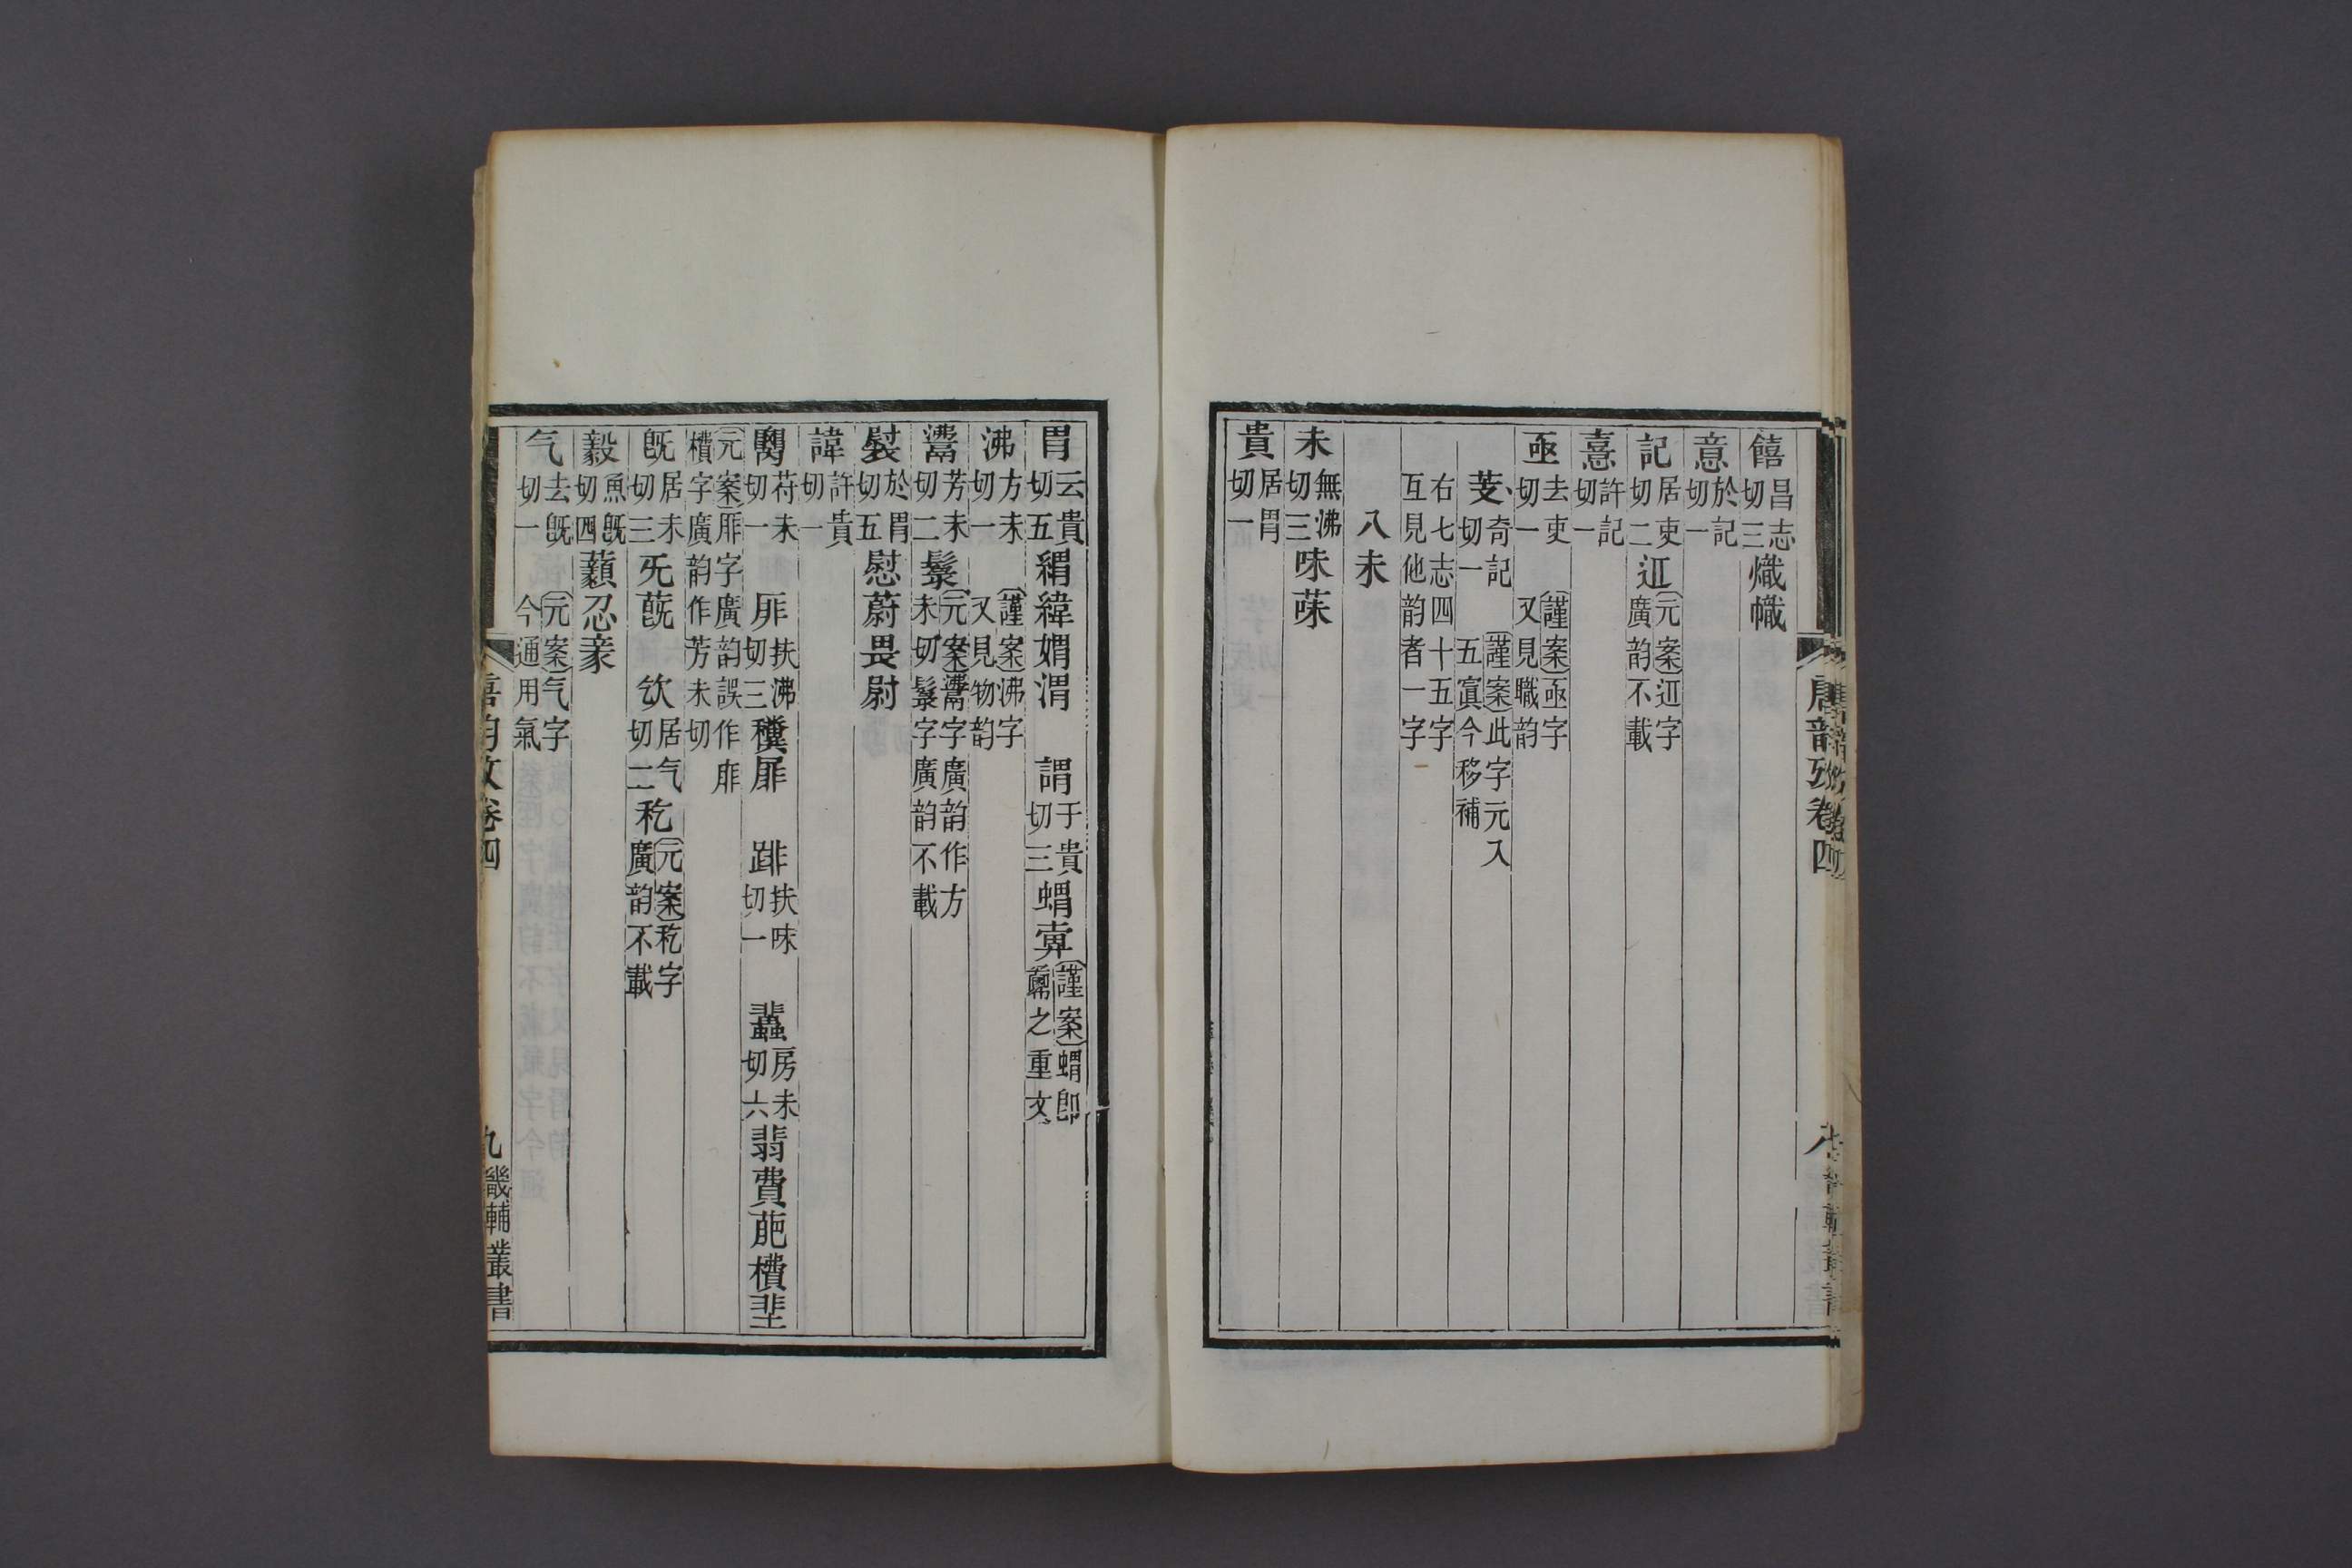 饎昌志切三熾幟
意於記切一
記居吏切二𨒪元案𨒪字廣韵不載
憙許記切一
亟去吏切一 謹案亟字又見職韵
芰奇記切一 謹案此字元入五寘今移補
右七志四十五字互見他韵者一字
八未
未無沸切三味菋
貴居胃切一
唐韵攷卷四
胃云貴切五緭緯媦渭 謂于貴切三蝟㣇謹案蝟卽之重文
沸方未切一 謹案沸字又見物韵
鬻芳未切二髴元案字廣韵作方未切髴字廣韵不載
褽於胃切五慰蔚畏尉
諱許貴切一
䆏苻未切一 厞扶沸切三䆏屝 䠊扶味切一 蜚房未切六翡費萉櫕𡌦
元案厞字廣韵誤作䨽櫕字廣韵作芳未切
旣居未切三旡蔇 㰟居气切二秅元案秅字廣韵不載
毅魚旣切四藙忍豙
气去旣切一 元案气字今通用氣
唐韵攷卷四
九 畿輔叢書